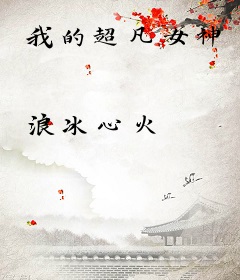 我的超凡女神
浪冰心火